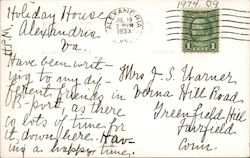 1974.09
Holiday House
Alexandria
Va.
Have been writ-
ing to my dif-
ferent friends in
OB-port, as there
is lots of time for
it down here. Hav-
ing a happy time.
ALEXANDRIA
1933
VA.
1 1
Mrs J. S. Warner
Verna Hill Road
Greenfield Hill
Fairfield
Conn